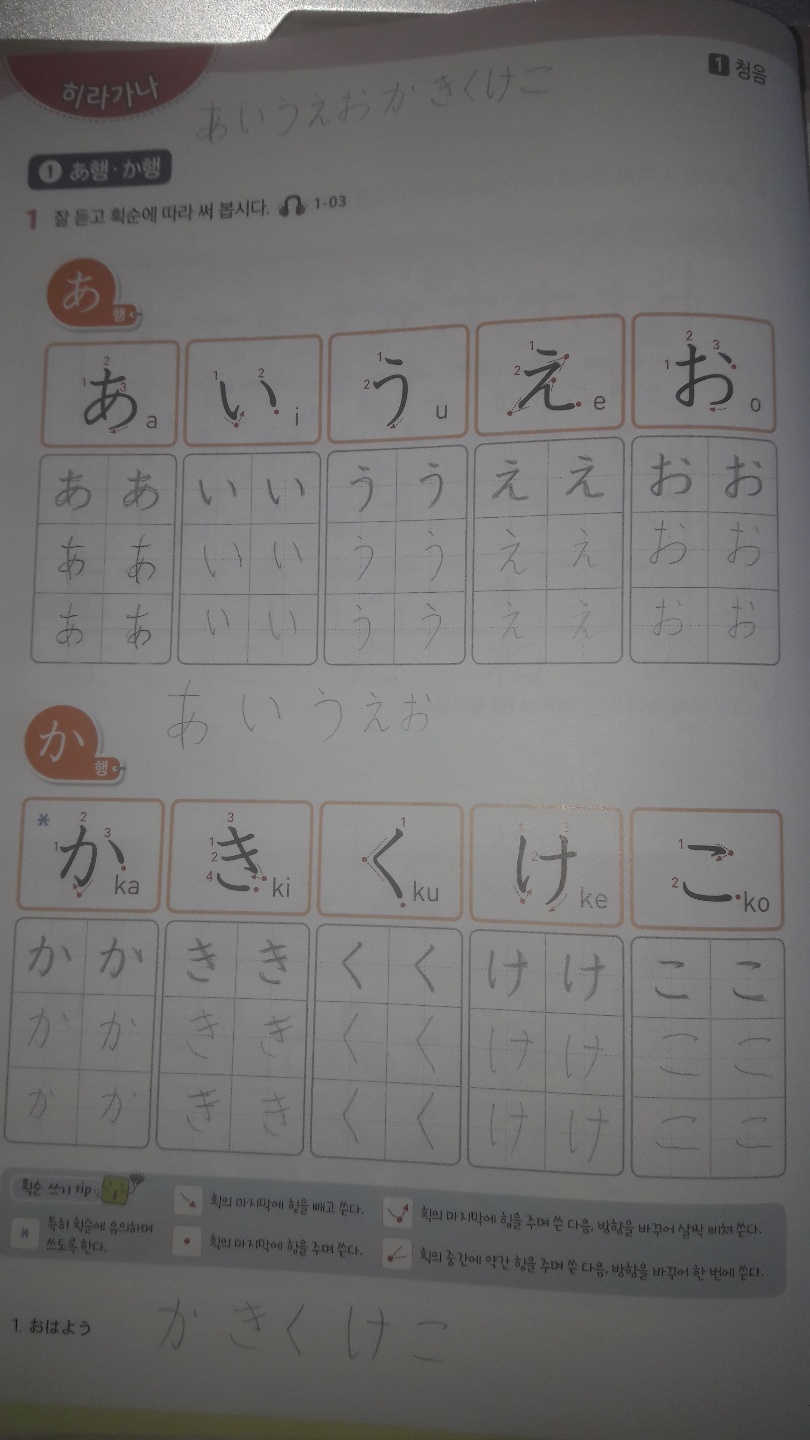 히라가나
1 청음
あいうえおかきくけこ
1 あ행·か행
1 잘 듣고 획순에 따라 써 봅시다. 1-03
あ행
1 2 3 あ a 1 2 い i 1 2 う u 1 2 え e 1 2 3 お o
ああ いい うう ええ おお
ああ いい うう ええ おお
ああ いい うう ええ おお
あいうえお
か행
* 1 2 3 か ka 1 2 3 4 き ki 1 く ku 1 2 3 け ke 1 2 こ ko
かか きき くく けけ ここ
かか きき くく けけ ここ
かか きき くく けけ ここ
획순 쓰기 tip
획의 마지막에 힘을 빼고 쓴다.
획의 마지막에 힘을 주며 쓴 다음, 방향을 바꾸어 살짝 삐쳐 쓴다.
* 특히 획순에 유의하며
쓰도록 한다.
획의 마지막에 힘을 주며 쓴다.
획의 중간에 약간 힘을 주며 쓴 다음, 방향을 바꾸어 한 번에 쓴다.
1. おはよう
かきくけこ